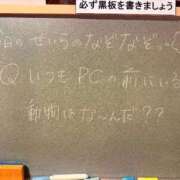 必ず黒板を書きましょう
今日のせいらのなぞなぞ〜
Q いつもPCの前にいる
動物はな〜んだ??